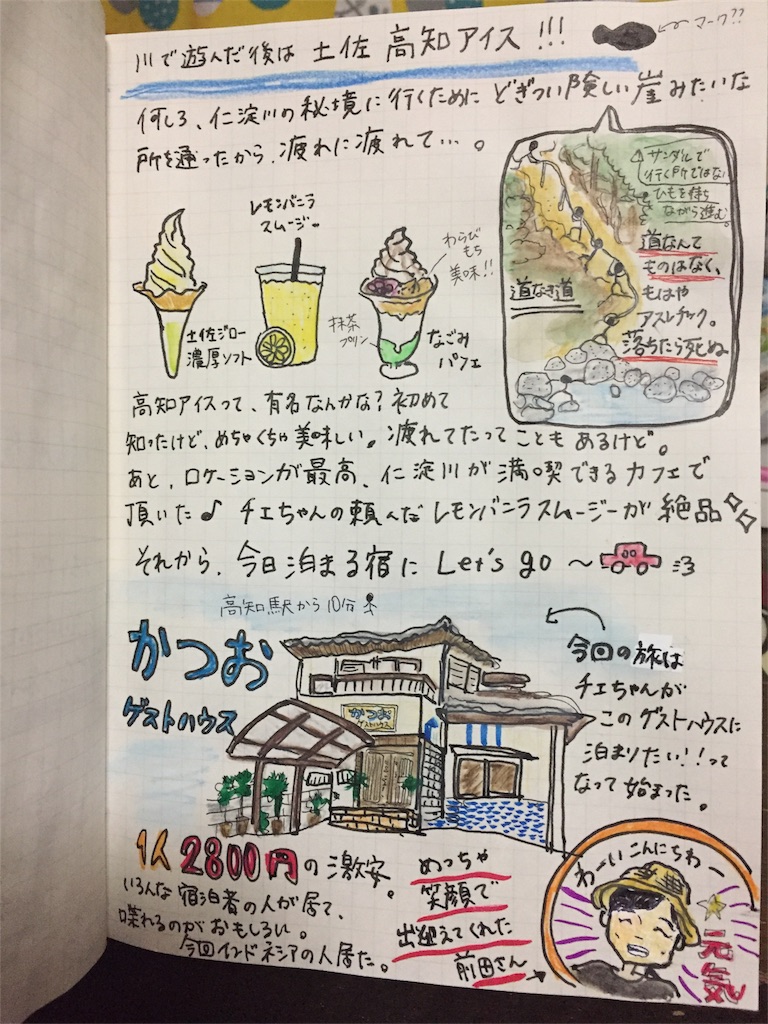 川で遊んだ後は 土佐 高知アイス!!!
マーク??
何しろ、仁淀川の秘境に行くために どぎつい険しい崖みたいな
所を通ったから、疲れに疲れて…。
サンダルで
行く所ではない
ひもを持ち
ながら進む。
道なんて
ものはなく、
もはや
アスレチック。
落ちたら死ぬ
道なき道
レモンバニラ
スムージー
わらび
もち
美味!!
土佐ジロー
濃厚ソフト
抹茶
プリン
なごみ
パフェ
高知アイスって、有名なんかな?初めて
知ったけど、めちゃくちゃ美味しい。疲れてたってこともあるけど。
あと、ロケーションが最高、仁淀川が満喫できるカフェで
頂いた♪ チエちゃんの頼んだレモンバニラスムージーが絶品
それから、今日泊まる宿に Let's go 〜
高知駅から10分
かつお
ゲストハウス
かつお
ゲストハウス
今回の旅は
チエちゃんが
このゲストハウスに
泊まりたい!!って
なって始まった。
1人 2800円の激安。
いろんな宿泊者の人が居て、
喋れるのがおもしろい。
今回インドネシアの人居た。
めっちゃ
笑顔で
出迎えてくれた
前田さん
わーいこんにちわー
元気